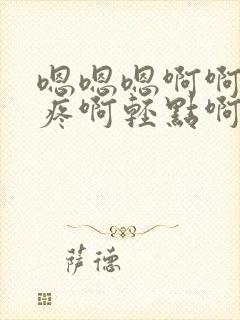 嗯嗯嗯啊啊
疼啊轻點啊
萨德